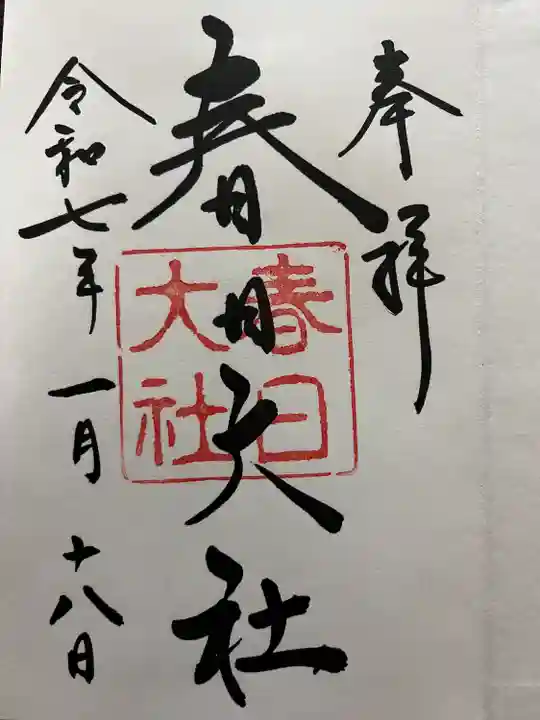 奉拝
春日大社
春日大社
令和七年一月十八日